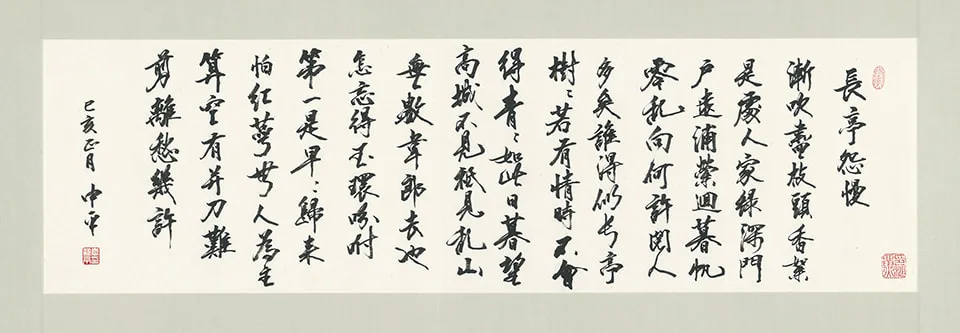 長亭怨慢
漸吹盡枝頭香絮
是處人家綠深門
戶遠浦縈迴暮帆
零亂向何許閱人
多矣誰得似長亭
樹〻若有情時不會
得青〻如此日暮望
高城不見祇見亂山
無數韋郎去也
怎忘得玉環吩咐
第一是早〻歸來
怕紅萼無人為主
算空有并刀難
剪離愁幾許
己亥正月 平